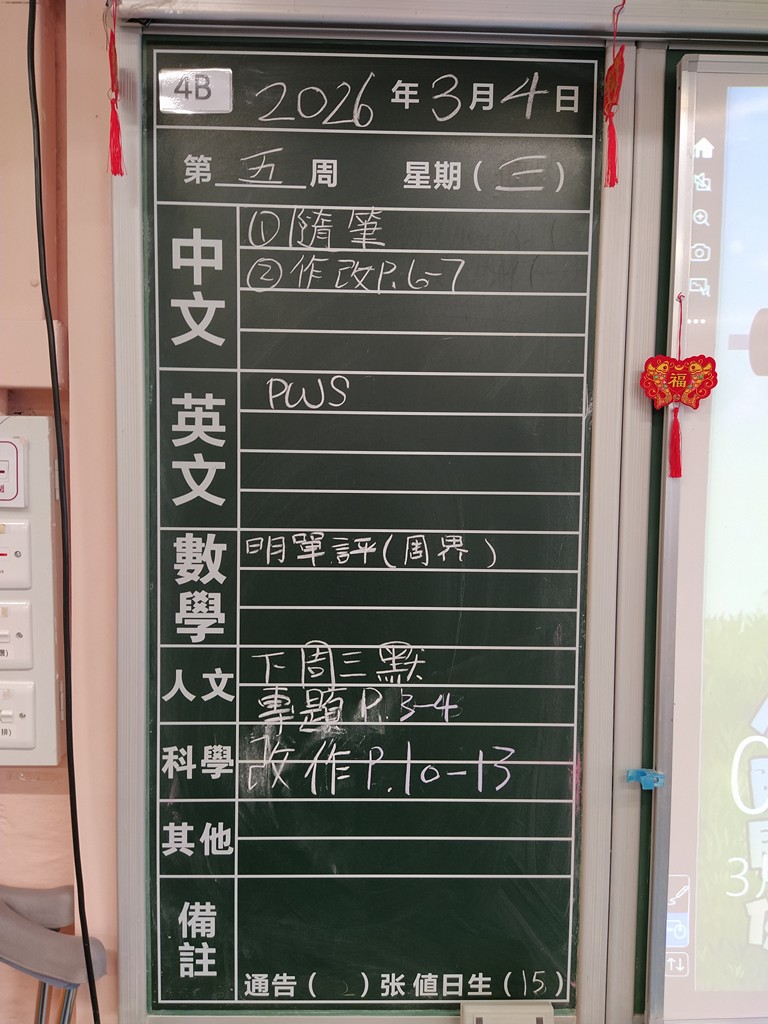 4B 2026年3月4日
第五周 星期(三)
中文
①隨筆
②作改P.6-7
英文
PWS
數學
明單評(周界)
人文
下周三默
專題P.3-4
科學
改作P.10-13
其他
備註
通告( )张 值日生(15)
福